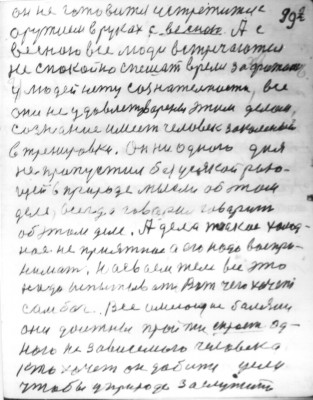 он не готовится встретится с 99
оружием в руках с весной. А с
весною все люди встречаются
не спокойно спешат время
у людей нету сознательности, все
они не удовлетворены этим делом,
сознание имеет человек закаленный
в тренировки. Он ни одного дня
не пропустил без усякой
в природе мысли об этом
деле, всегда говорил говорит
об этом деле. А дело такое холод-
ная не приятная а его надо воспри-
нимат. На своем теле все это
надо испытывать. Вот чего хочет
сам бог. Все имеющие болезни
они должны пройти од-
ного не зависемого человека
кто хочет он добит дела
чтобы у природе заслужит